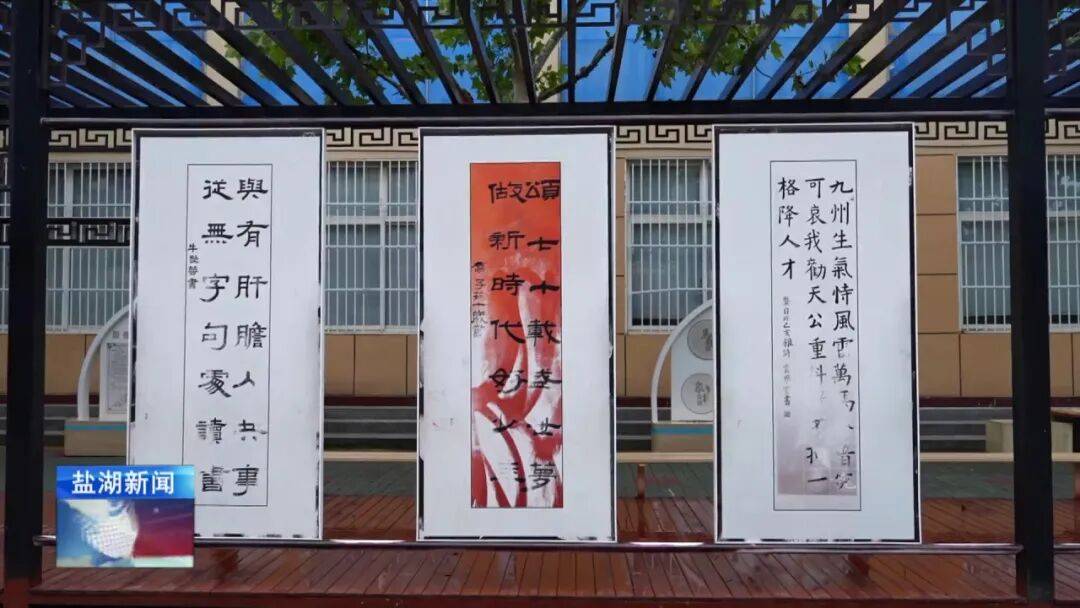 盐湖新闻
與有肝膽人共事
從無字句處讀書
頌七十載盛世夢
做新時代好少年
九州生氣恃風雷萬馬
可哀我勸天公重抖不拘一
格降人才
龔自珍己亥雜詩